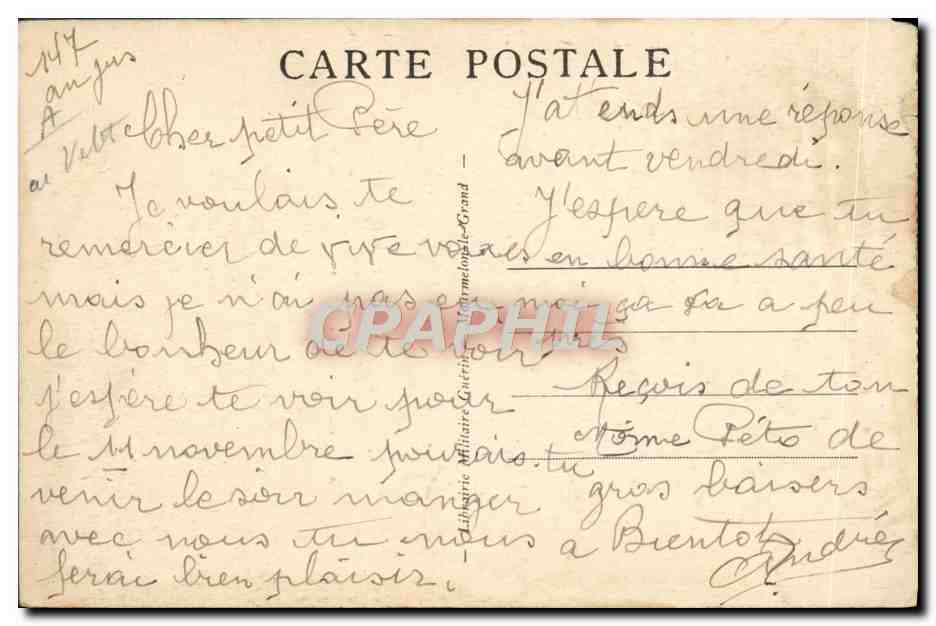 CARTE POSTALE
147
au jus
A
Cher petit Père
Je voulais te
remercier de vive voix
mais je n'ai pas eu
le bonheur de te voir
j'espère te voir pour
le 11 novembre pourais-tu
venir le soir manger
avec nous tu nous
ferai bien plaisir.
Librairie Militaire Guérin, Mourmelon-le-Grand
J'attends une réponse
avant vendredi.
J'espere que tu
es en bonne santé
moi ça va a peu
près
Reçois de ton
Môme Péto de
gros baisers
a Bientot
André
CPAPHIL